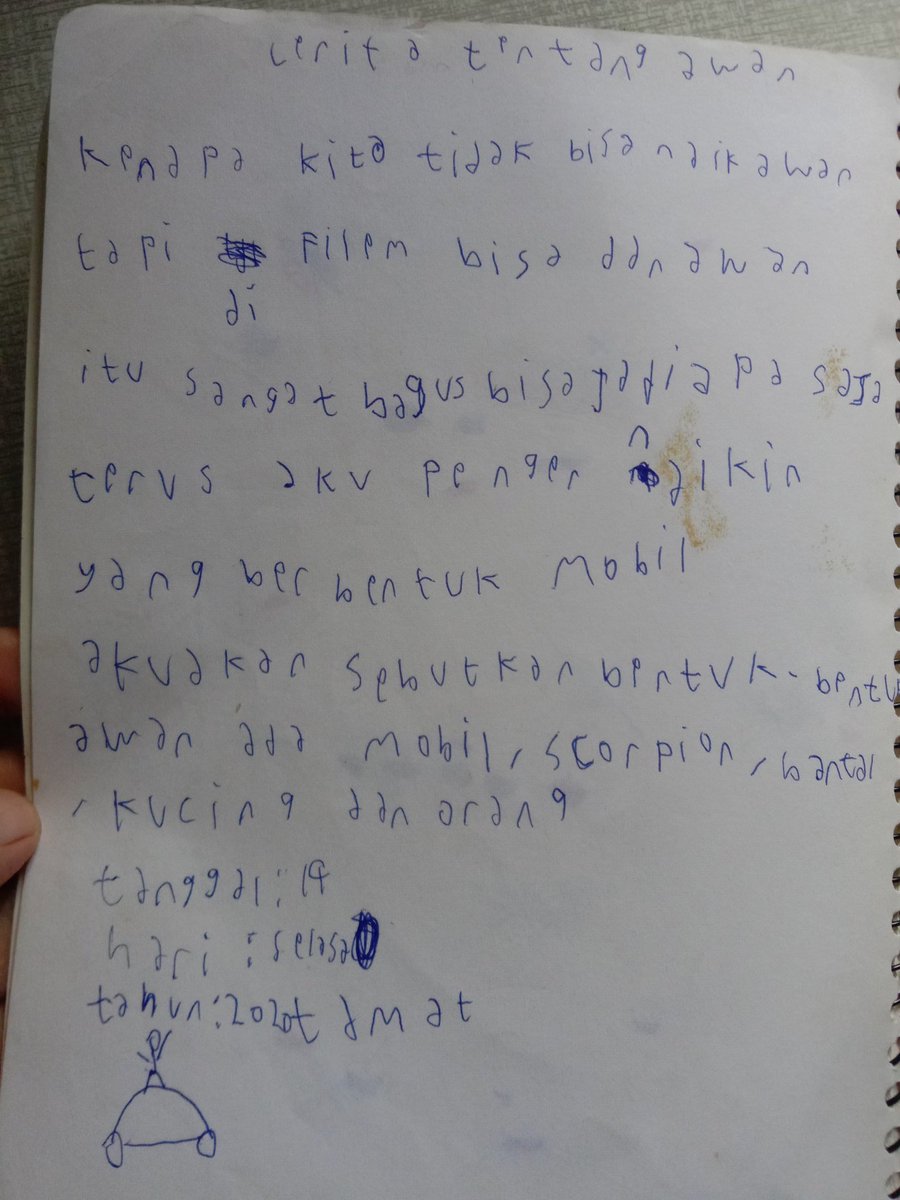 cerita tentang awan
kenapa kita tidak bisa naik awan
tapi di Filem bisa dan awan
itu sangat bagus bisa jadi apa saja
terus aku penger naikin
yang ber bentuk mobil
aku akan sebutkan bentuk-bentu
awan ada mobil, scorpion, bantal
, kucing dan orang
tanggal: 14
hari: selasa
tahun: 2020 tamat